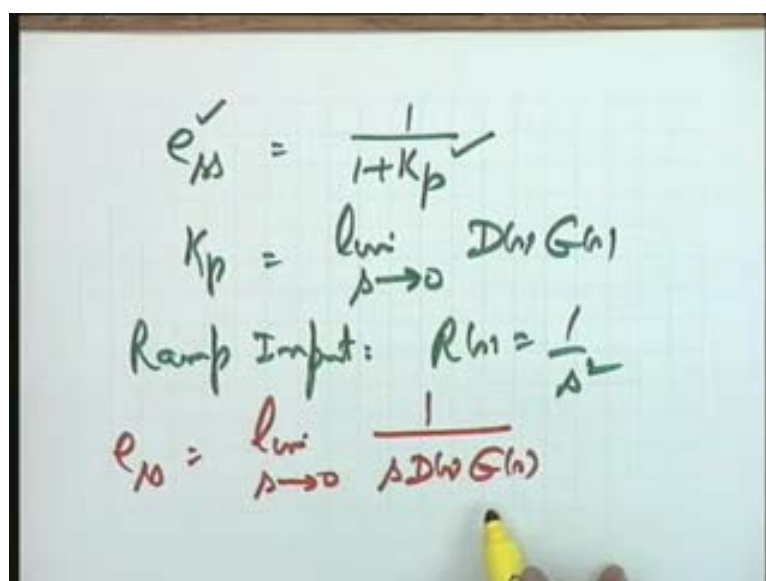 e_ss = 1/(1+K_p)
K_p = lim s→0 D(s) G(s)
Ramp Input: R(s) = 1/s²
e_ss = lim s→0 1/(s D(s) G(s))